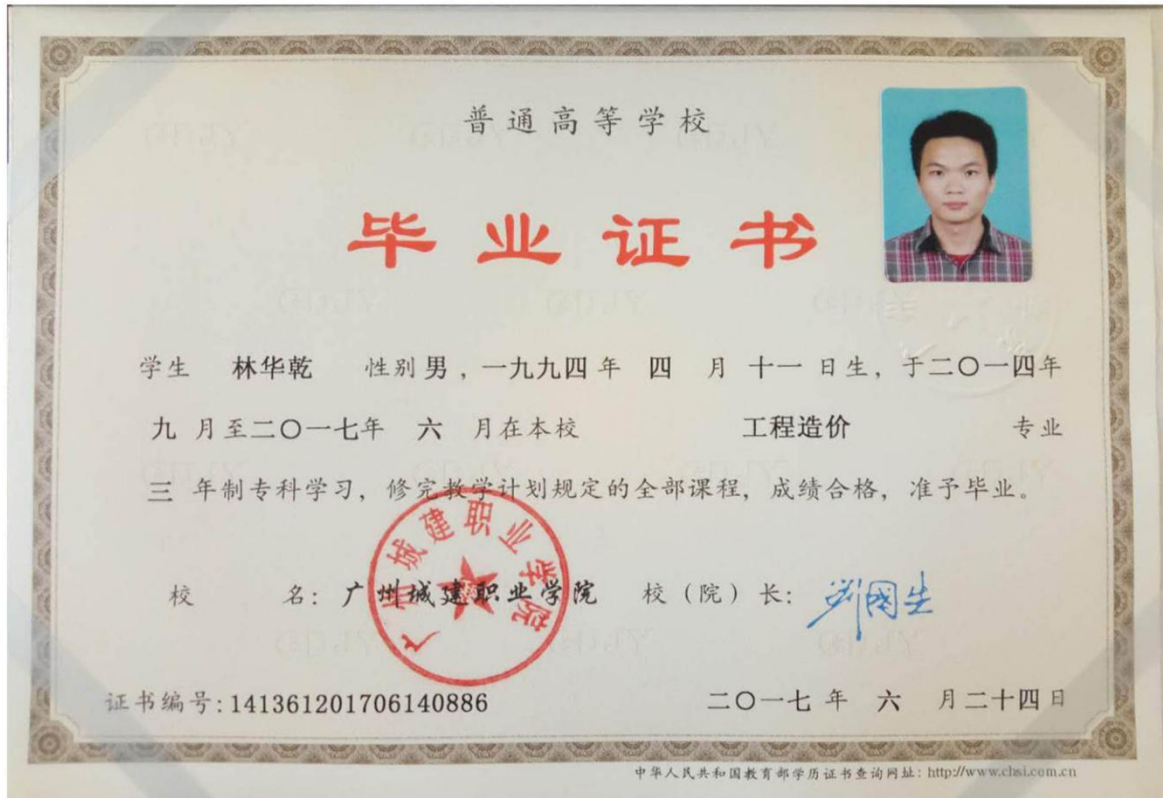 普通高等学校
毕业证书
学生 林华乾 性别 男 , 一九九四 年 四 月 十一 日生, 于二〇一四年
九 月至二〇一七年 六 月在本校 工程造价 专业
三 年制专科学习, 修完教学计划规定的全部课程, 成绩合格, 准予毕业。
广州城建职业学院
校 名: 广州城建职业学院 校(院)长: 刘国生
证书编号:141361201706140886 二〇一七 年 六 月二十四日
中华人民共和国教育部学历证书查询网址: http://www.chsi.com.cn